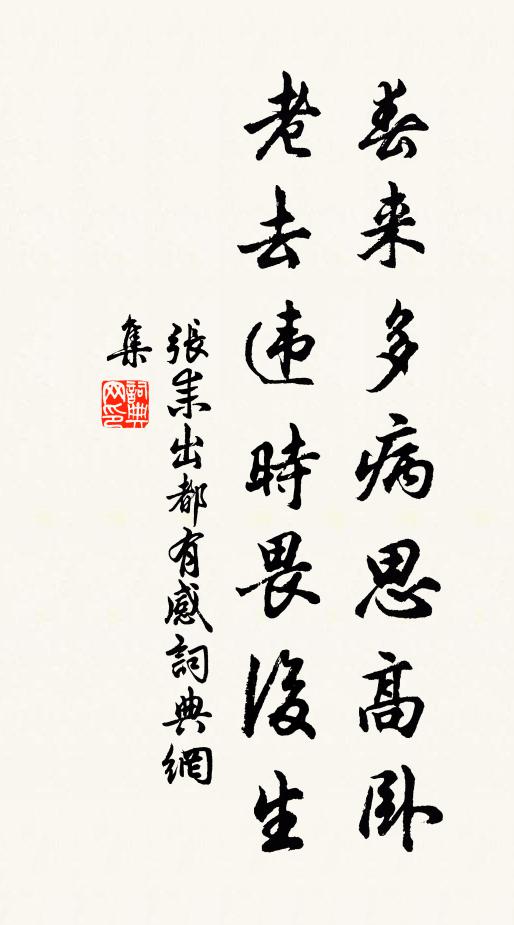 春来多病思高卧
老去违時畏後生
張耒出都有感詞典網
集
詞典
网印